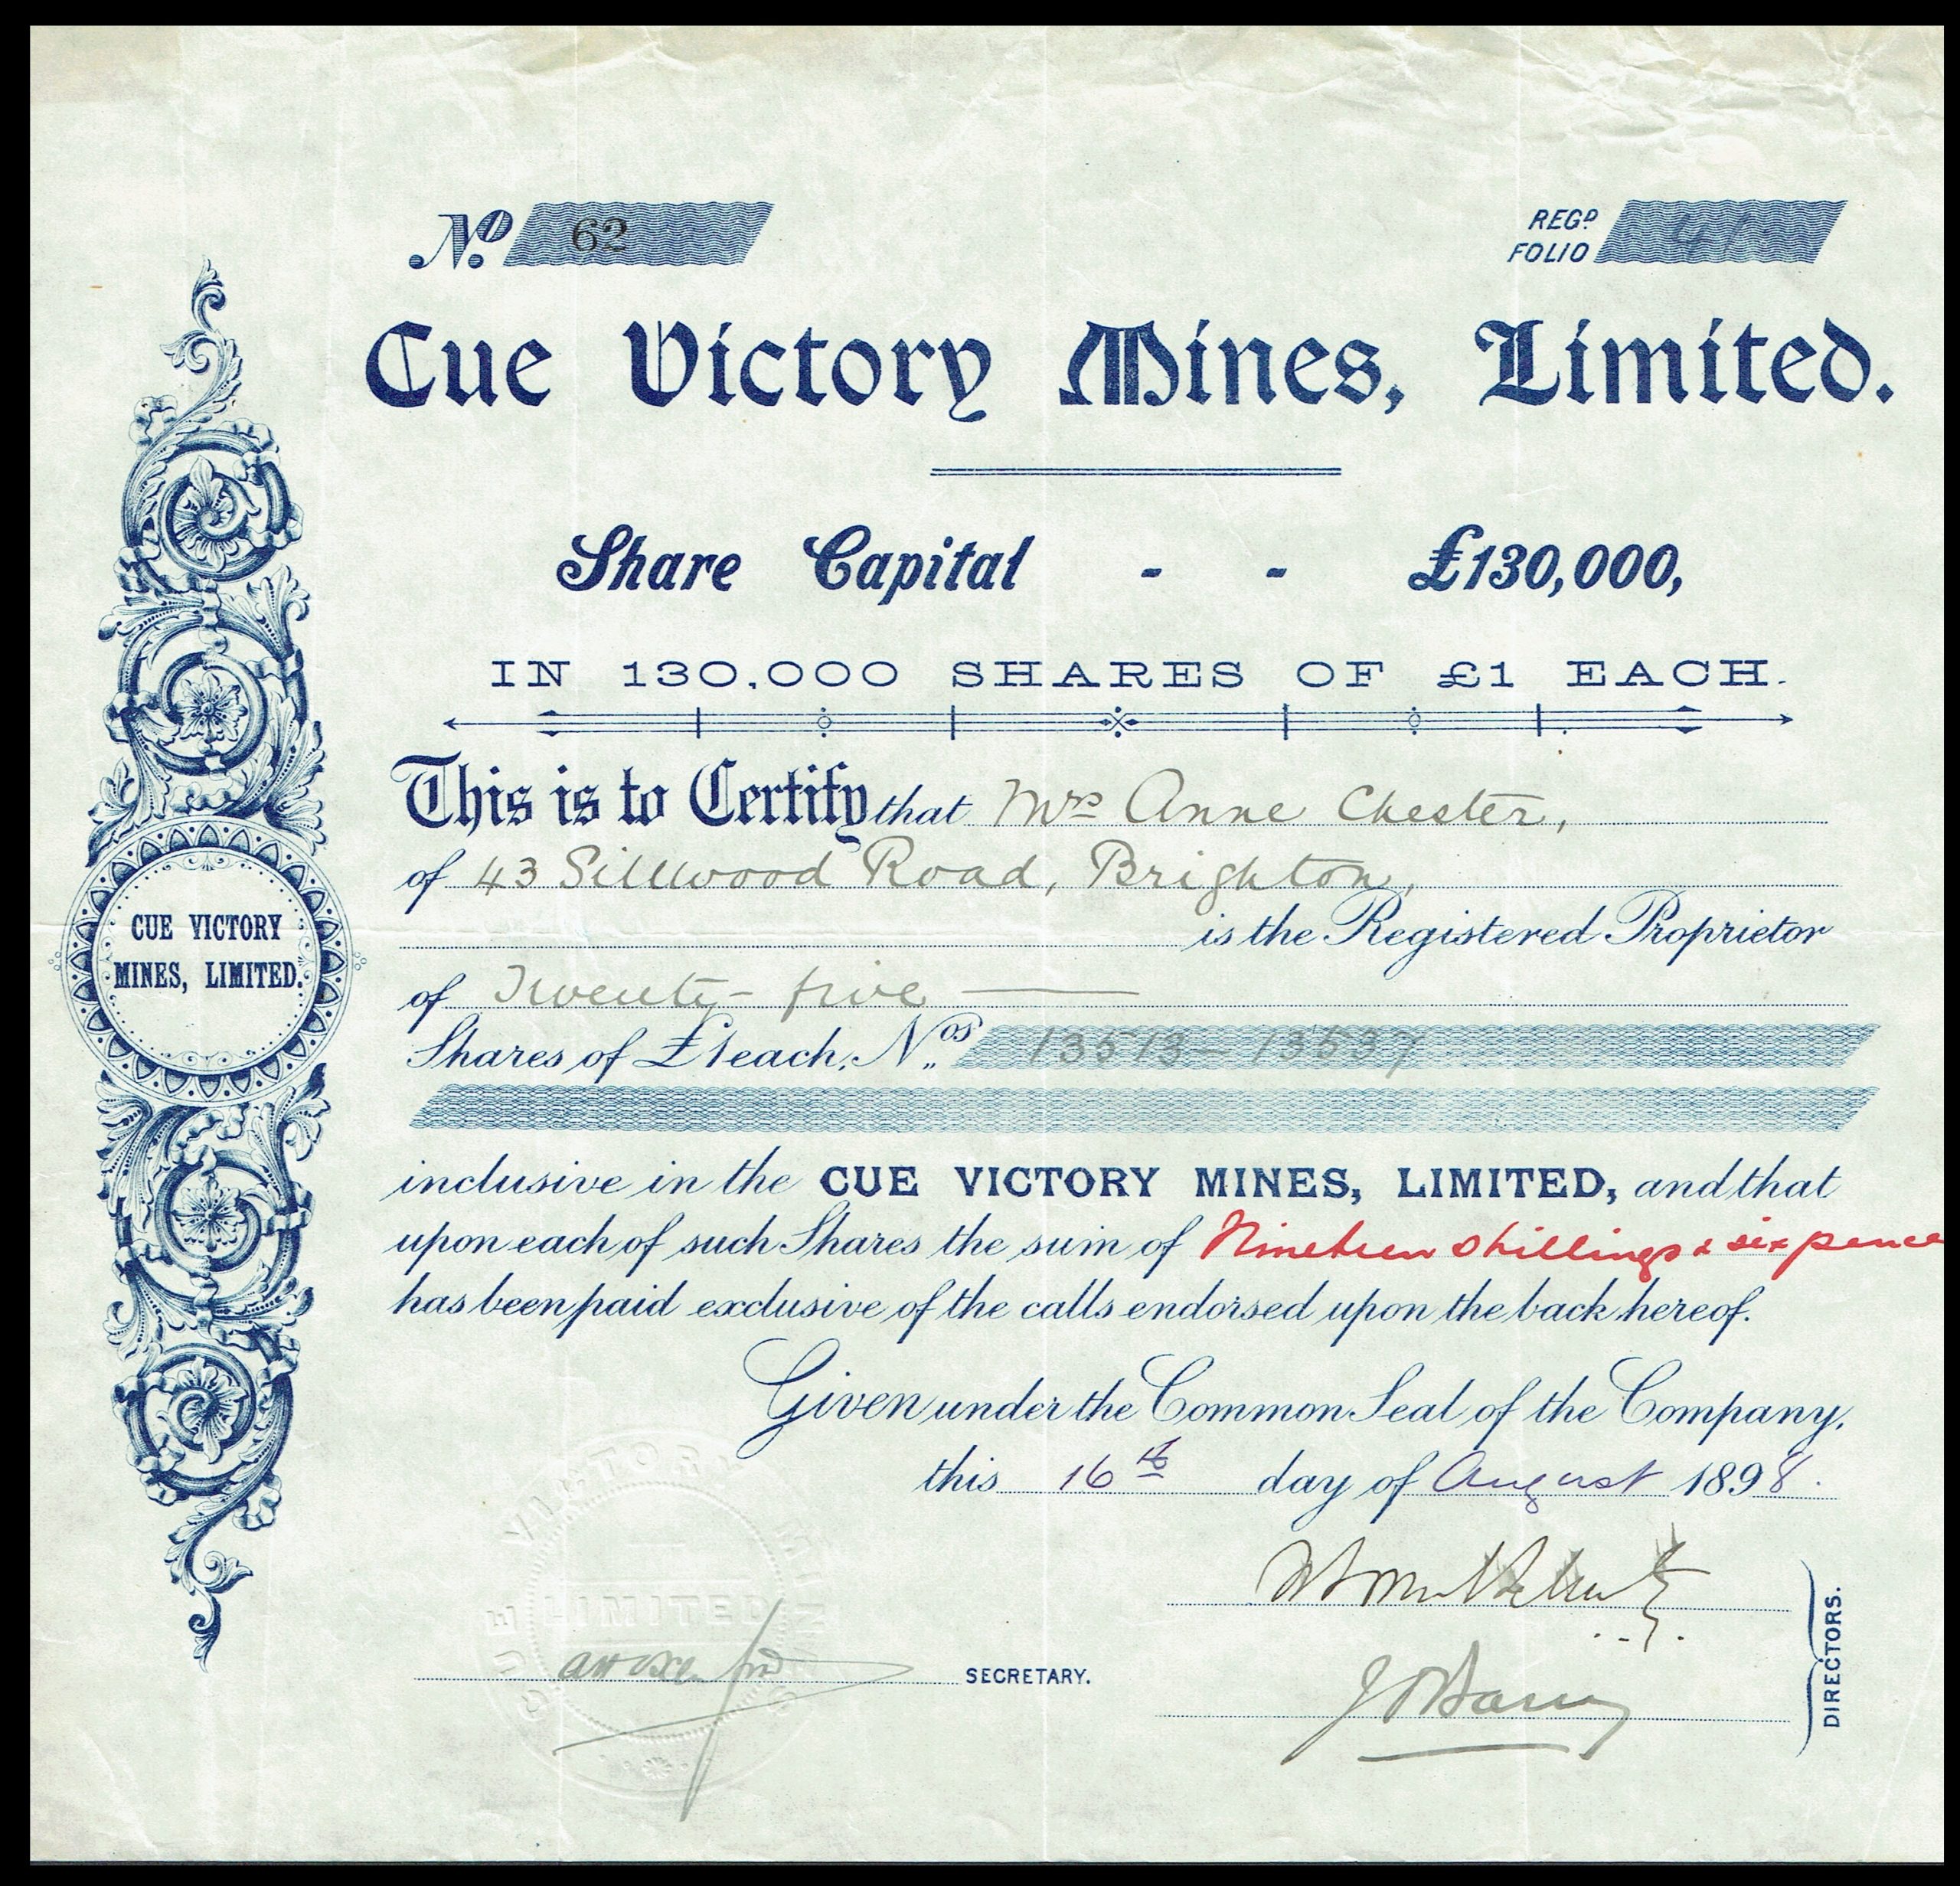 No. 62
REGD.
FOLIO 41
Cue Victory Mines, Limited.
Share Capital - - £130,000,
IN 130,000 SHARES OF £1 EACH.
This is to Certify that Mrs Anne Chester,
of 43 Sillwood Road, Brighton,
is the Registered Proprietor
of Twenty-five
Shares of £1 each, Nos. 13513 - 13537
inclusive in the CUE VICTORY MINES, LIMITED, and that
upon each of such Shares the sum of Nineteen shillings & sixpence
has been paid exclusive of the calls endorsed upon the back hereof.
Given under the Common Seal of the Company,
this 16th day of August 1898.
SECRETARY.
DIRECTORS.
CUE VICTORY
MINES, LIMITED.
CUE VICTORY MINES
LIMITED